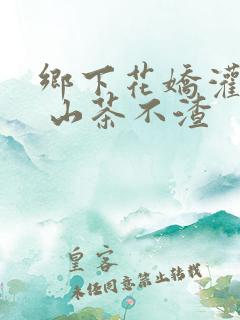 鄉下花嬌灌
山茶不渣
皇客
未经同意禁止转载